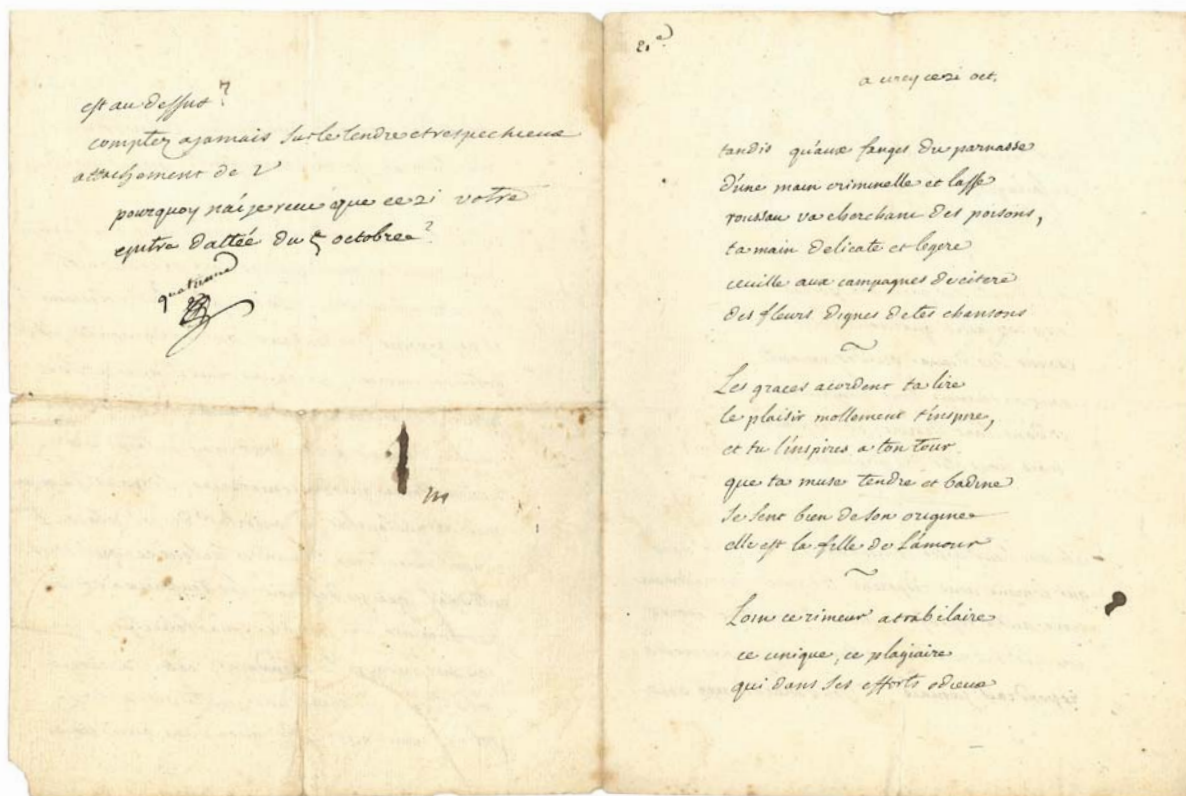 est au dessus?
comptez ajamais sur le tendre et respectueux
attachement de V
pourquoy n'ai je receu que ce 21 votre
epitre dattée du 5 octobre?
21e
a cirey ce 21 oct.
tandis qu'aux fanges du parnasse
d'une main criminelle et lasse
rousseau va cherchant des poisons,
ta main delicate et legere
ceuille aux campagnes de citere
des fleurs dignes de tes chansons
~
Les graces acordent ta lire
le plaisir mollement t'inspire,
et tu l'inspires a ton tour.
que ta muse tendre et badine
se sent bien de son origine
elle est la fille de L'amour
~
Loin ce rimeur atrabilaire
ce cinique, ce plagiaire
qui dans ses efforts odieux